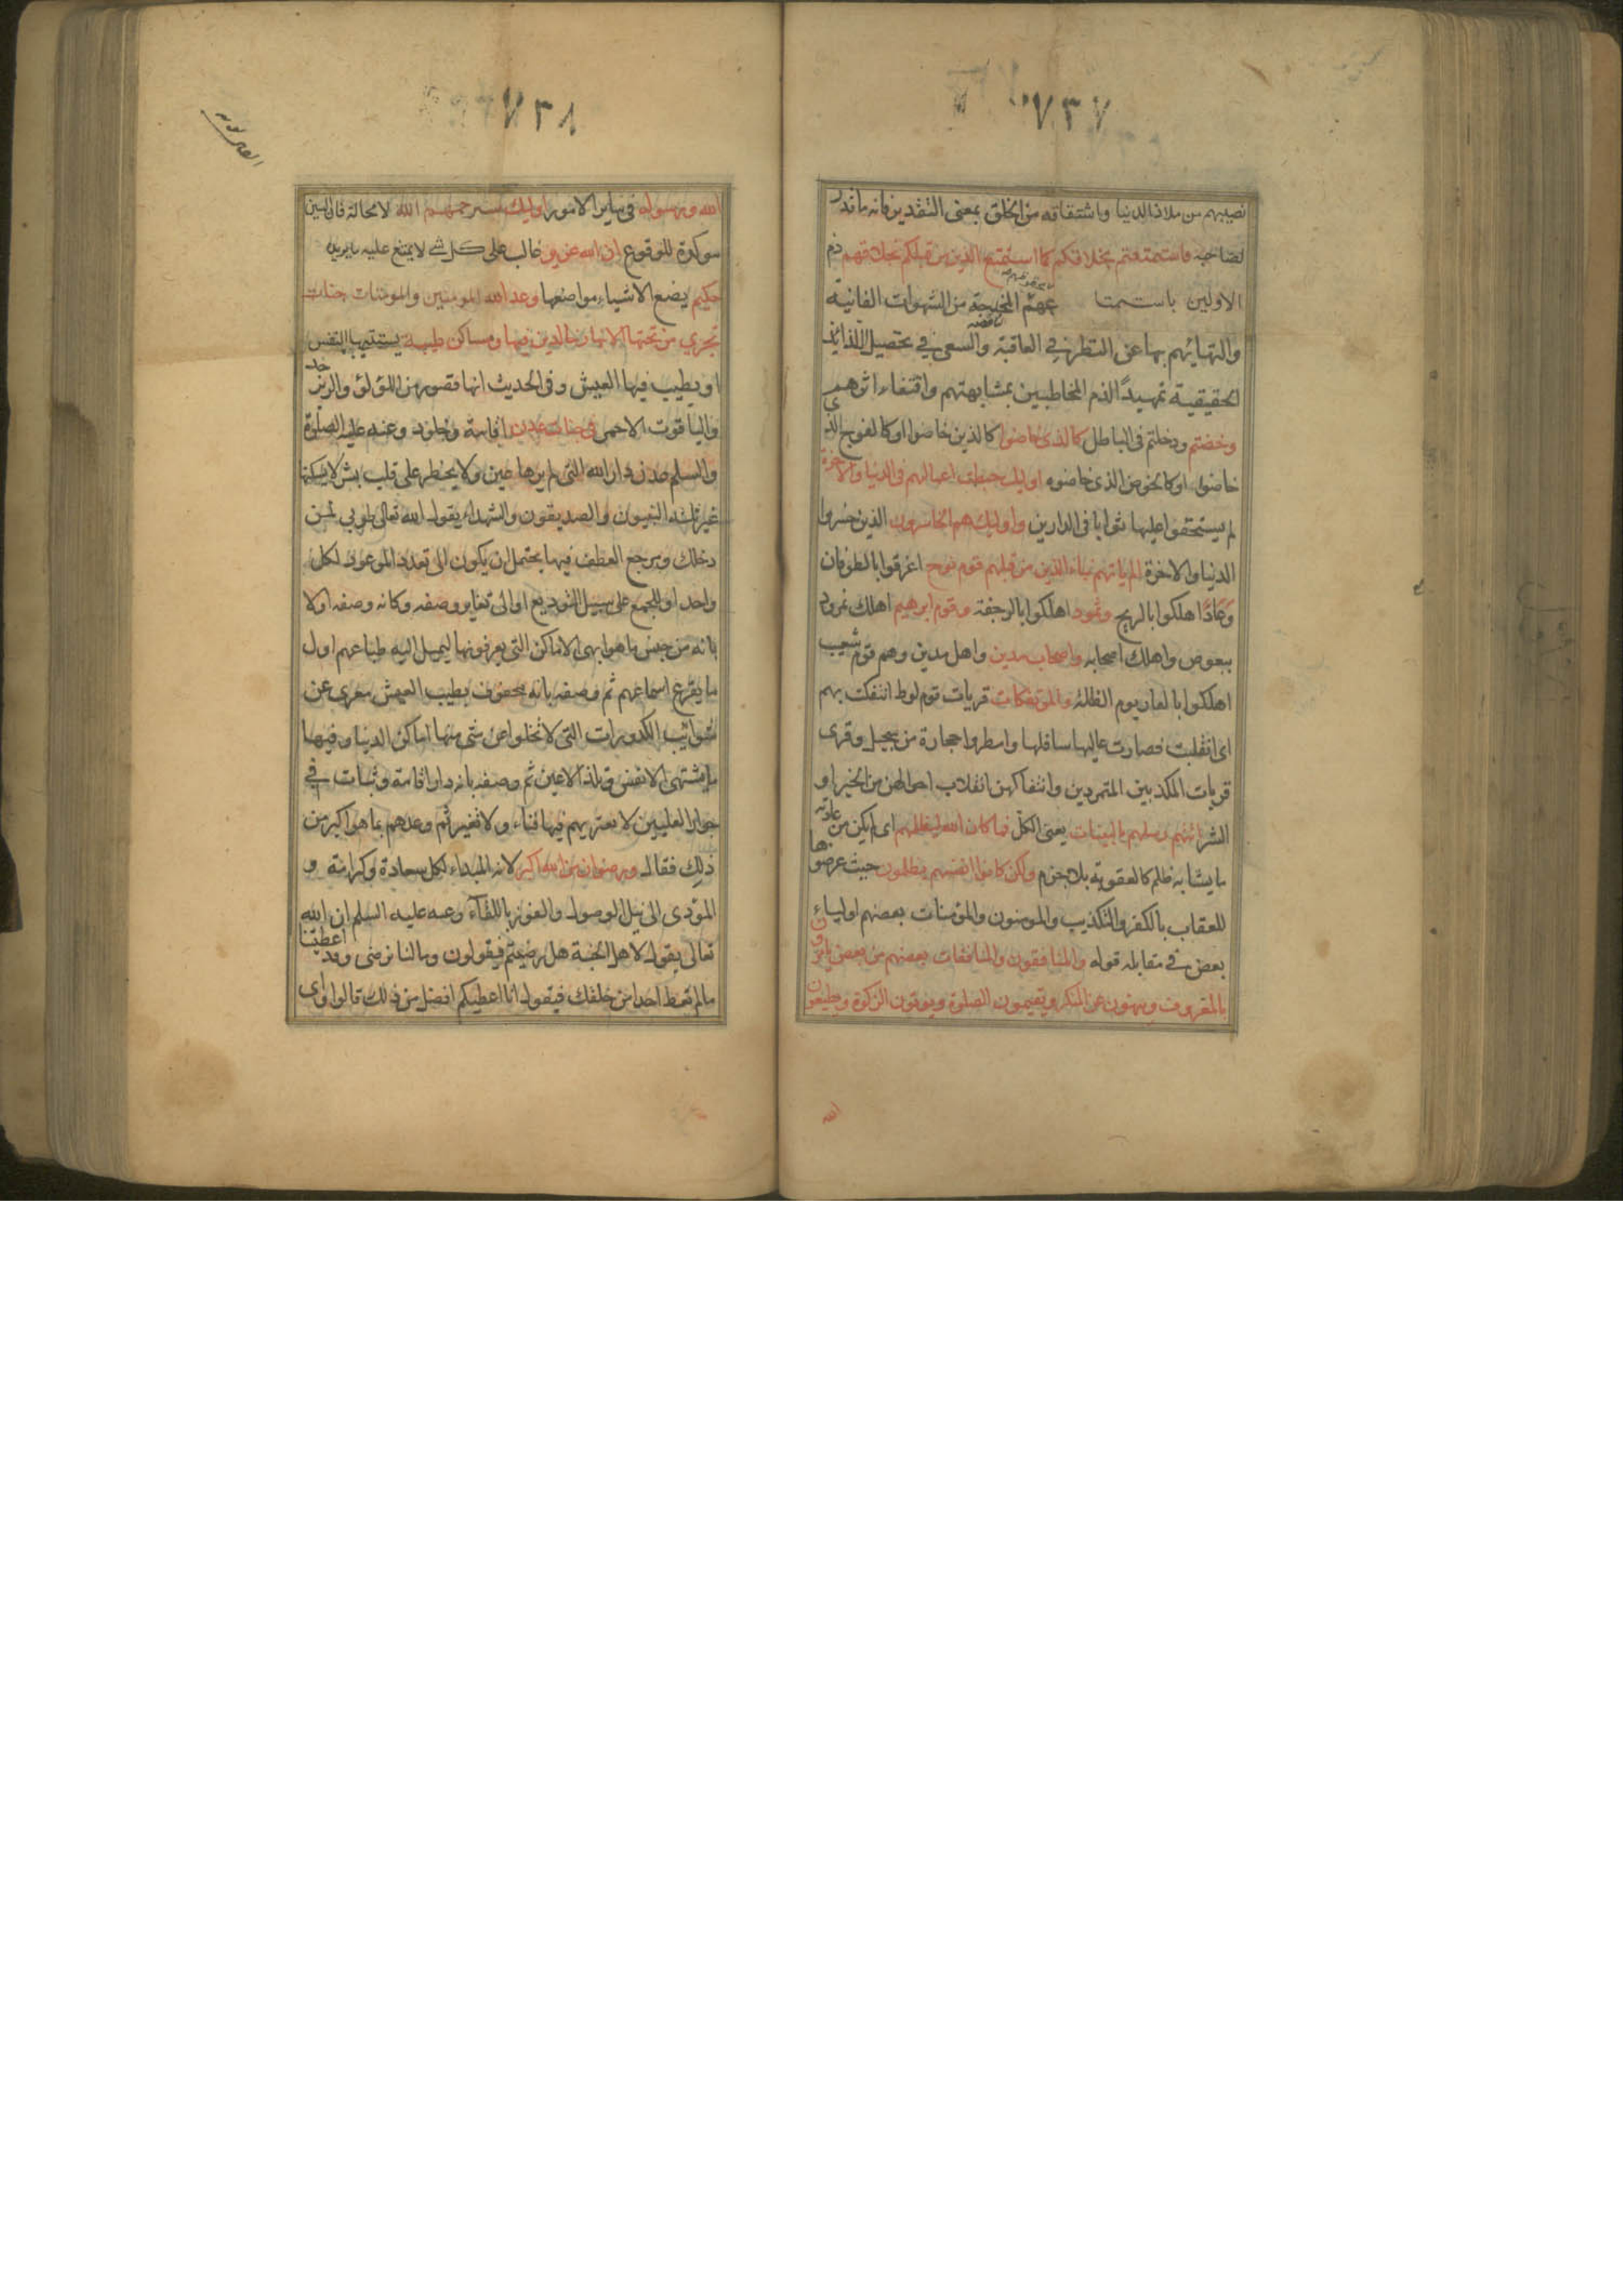 ٧٣٧
نصيبهم من ملاذ الدنيا واشتقاقه من الخلق بمعنى التقدير فانه ما قدر
لصاحبه فاستمتعتم بخلاقكم كما استمتع الذين من قبلكم بخلاقهم ذم
الاولين باستمتا عهم المخدجة من الشهوات الفانية
والتهائهم بها عن النظر في العاقبة والسعى في تحصيل اللذائذ
الحقيقية تمهيدًا لذم المخاطبين بمشابهتهم واقتفاء اثرهم
وخضتم ودخلتم فى الباطل كالذى خاضوا كالذين خاضوا او كالفوج الذى
خاضوا او كالخوض الذى خاضوه اوليك حبطت اعمالهم فى الدنيا والاخرة
لم يستحقوا عليها ثوابا فى الدارين واوليك هم الخاسرون الذين خسروا
الدنيا والاخرة الم ياتهم نباء الذين من قبلهم قوم نوح اغرقوا بالطوفان
وَعَادًا هلكوا بالريح وثمود اهلكوا بالرجفة وقوم ابرهيم اهلك نمرود
ببعوض واهلك اصحابه واصحاب مدين واهل مدين وهم قوم شعيب
اهلكوا بالنار يوم الظلة والمؤتفكات قريات قوم لوط ائتفكت بهم
اى انقلبت فصارت عاليها سافلها وامطروا حجارة من سجيل وقرى
قريات المكذبين المتمردين وائتفاكهن انقلاب احوالهن من الخير او
الشر اتتهم رسلهم بالبينات يعنى الكل فما كان الله ليظلمهم اى لم يكن من عادته
ما يشابه ظلم كالعقوبة بلا جرم ولكن كانوا انفسهم يظلمون حيث عرضوها
للعقاب بالكفر والتكذيب والمومنون والمؤمنات بعضهم اولياء
بعض في مقابله قوله والمنافقون والمنافقات بعضهم من بعض يامرون
بالمعروف وينهون عن المنكر ويقيمون الصلوة ويوتون الزكوة ويطيعون
الله
٧٣٨
الله ورسوله فى ساير الامور اوليك سيرحمهم الله لا محالة فان السين
موكدة للوقوع ان الله عزيز غالب على كل شئ لا يمتنع عليه ما يريده
حكيم يضع الاشياء مواضعها وعد الله المومنين والمومنات جنات
تجري من تحتها الانهار خالدين فيها ومساكن طيبة يستطيبها النفس
او يطيب فيها العيش وفى الحديث انها قصور من اللؤلؤ والزبرجد
والياقوت الاحمر فى جنات عدن اقامة وخلود وعنه عليه الصلوة
والسلم عدن دار الله التى لم يرها عين ولا يخطر على قلب بشر لا يسكنها
غير ثلثه النبيون والصديقون والشهداء يقول الله تعالى طوبى لمن
دخلك ومرجع العطف فيها يحتمل ان يكون الى تعدد الموعود لكل
واحد او للجمع على سبيل التوزيع او الى تغاير وصفه وكانه وصفه اولا
بانه من جنس ما هو ابهى الاماكن التى يعرفونها ليميل اليه طباعهم اول
ما يقرع اسماعهم ثم وصفه بانه محفوف بطيب العيش معرى عن
شوائب الكدورات التى لا تخلوا عن شئ منها اماكن الدنيا وفيها
ما يشتهى الانفس وتلذ الاعين ثم وصفه بانه دار اقامة وثبات في
جوار العليين لا يعتريهم فيها فناء ولا تغير ثم وعدهم بما هو اكبر من
ذلك فقال ورضوان من الله اكبر لانه المبداء لكل سعادة وكرامة و
المؤدى الى نيل الوصول والفوز باللقآء وعنه عليه السلم ان الله
تعالى يقول لاهل الجنة هل رضيتم فيقولون وما لنا لا نرضى وقد اعطيتنا
ما لم تعط احدا من خلقك فيقول انا اعطيكم افضل من ذلك قالوا واى